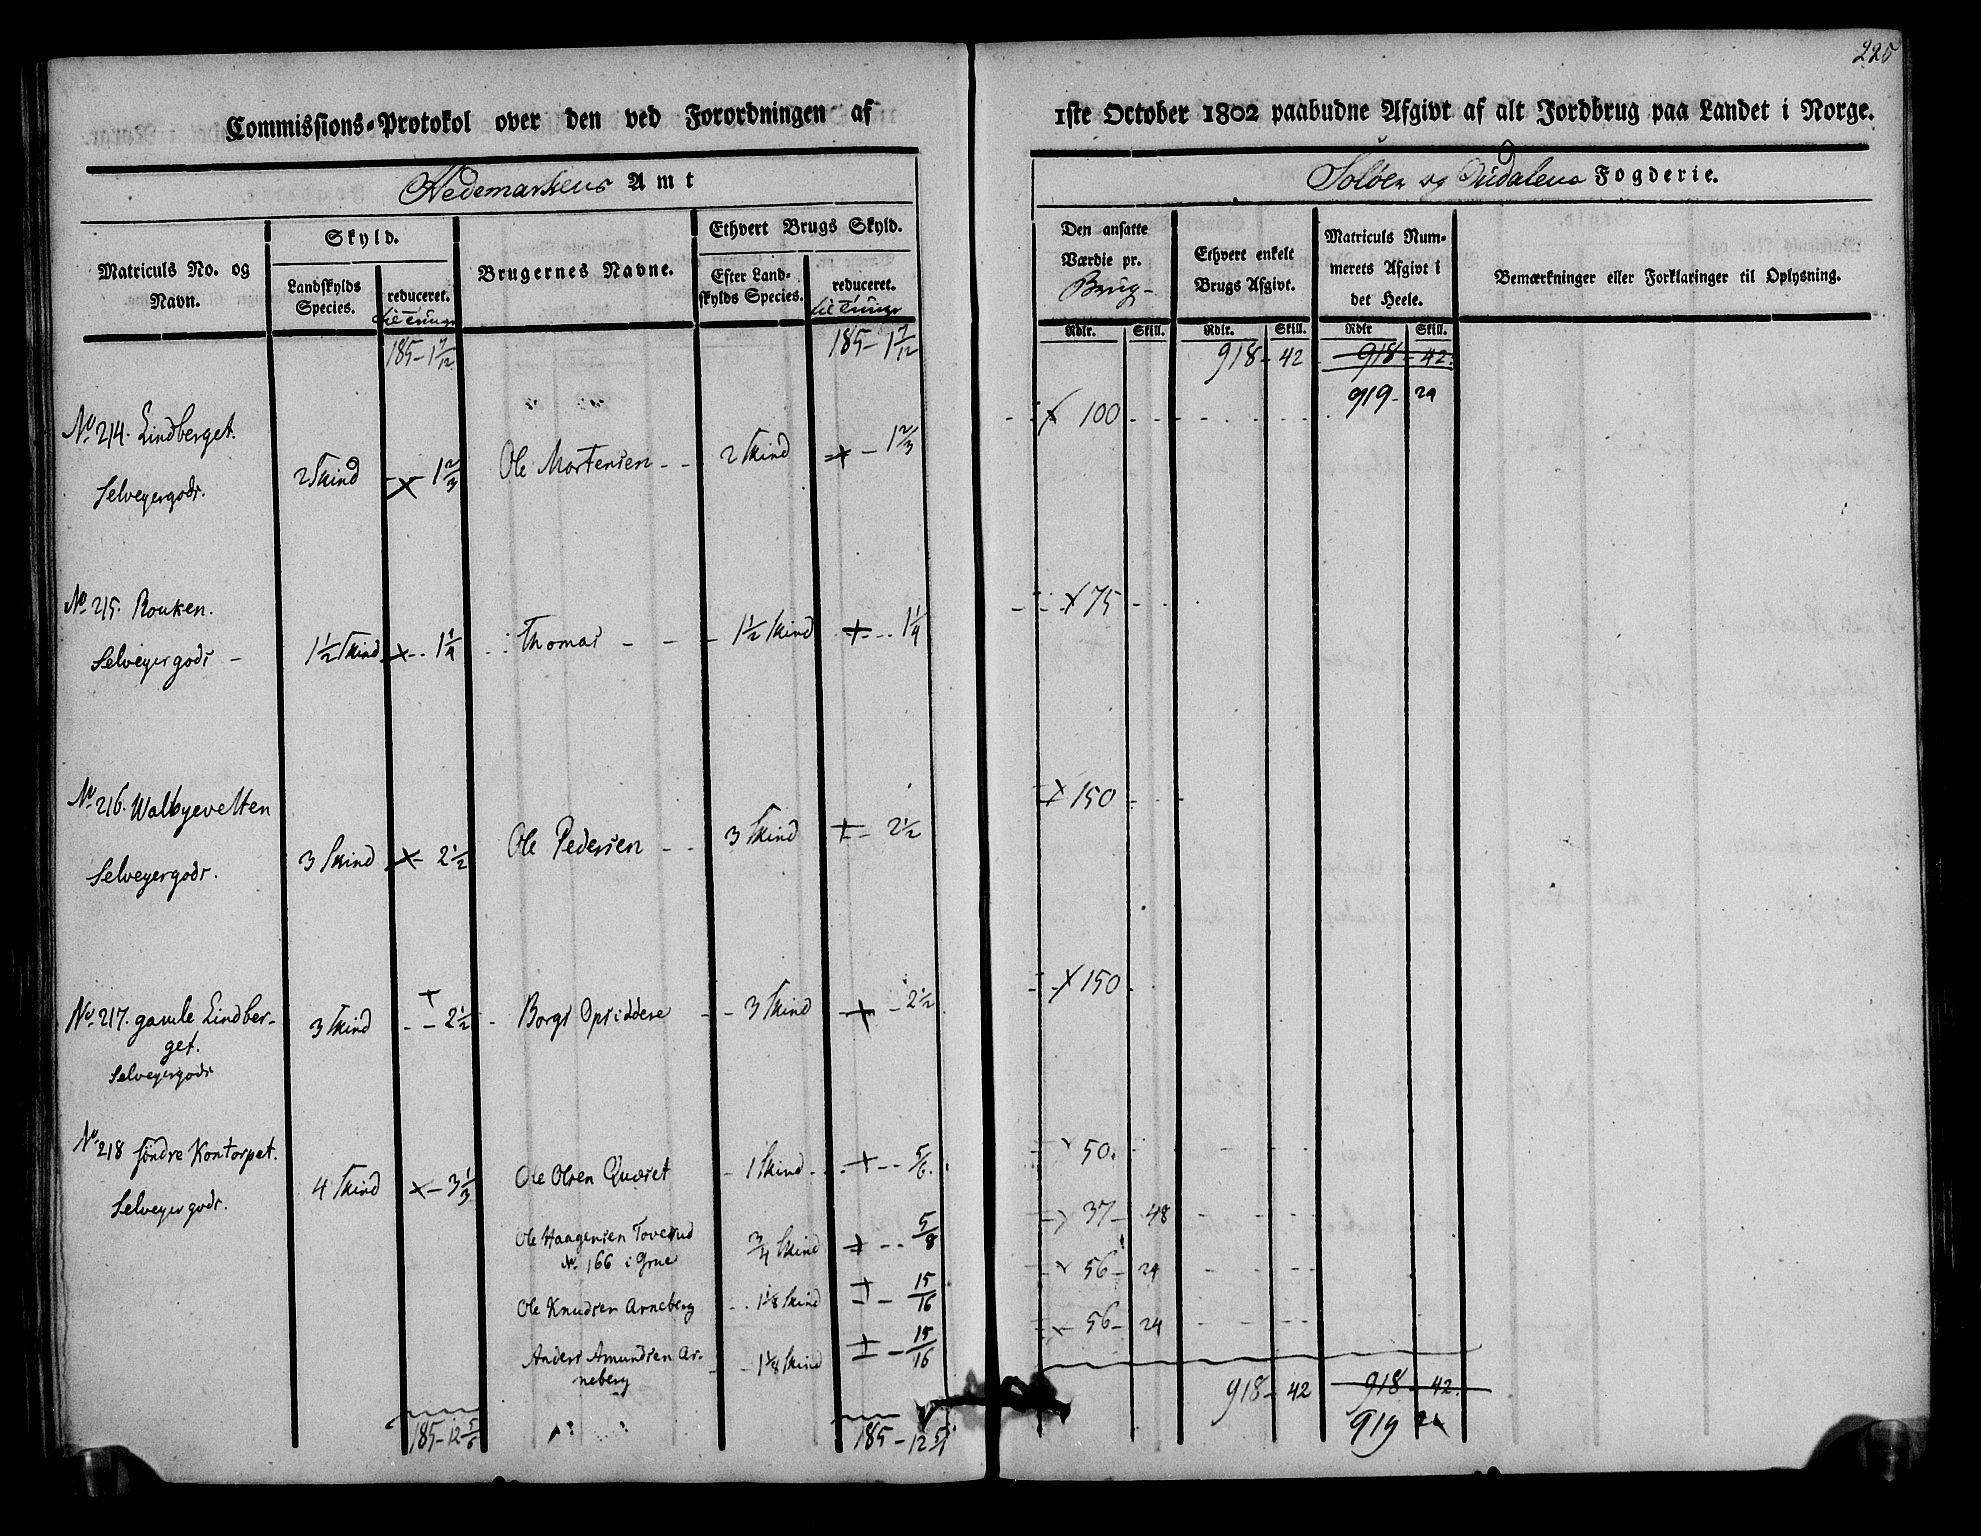 225
Commissions-Protokol over den ved Forordningen af 1ste October 1802 paabudne Afgivt af alt Jordbrug paa Landet i Norge.
Hedemarkens Amt
Soløer og Oudalens Fogderie.
Matriculs No. og Navn.
Skyld.
Landskylds Species.
reduceret. til Tunge
Brugernes Navne.
Ethvert Brugs Skyld.
Efter Landskylds Species.
reduceret. til Tunge
Den ansatte Værdie pr. Brug
Ethvert enkelt Brugs Afgivt.
Matriculs Nummerets Afgivt i det Heele.
Bemærkninger eller Forklaringer til Oplysning.
Rdlr. Skill. Rdlr. Skill. Rdlr Skill.
185 - 1 7/12 185 - 1 7/12 918 - 42 918 - 42.
919 - 24
No. 214. Lindberget.
Selveyergods. 2 Skind + - 1 2/3 Ole Mortensen - - 2 Skind + - 1 2/3 + 100
No. 215. Rouken.
Selveyergods - 1 1/2 Skind + - 1 1/4 Thomas - - 1 1/2 Skind + - 1 1/4 + 75
No. 216. Walbyevelten
Selveyergods. 3 Skind + - 2 1/2 Ole Pedersen - - 3 Skind + - 2 1/2 + 150
No. 217. gamle Lindber-
get.
Selveyergods
3 Skind + - 2 1/2 Borgs Opsiddere - 3 Skind + - 2 1/2 + 150
No. 218 søndre Kontorpet.
Selveyergods. 4 Skind + - 3 1/3 Ole Olsen Qværet - 1 Skind + - 5/6. 50.
Ole Haagensen Toverud
No. 166 i Grue 3/4 Skind + - 5/8 37 - 48
Ole Knudsen Arneberg 1 1/8 Skind + - 15/16 56 - 24
Anders Amundsen Ar-
neberg - 1 1/8 Skind + - 15/16 56 - 24
185 - 12 5/6 185 - 12 5/6 918 - 42 918 - 42.
919 24